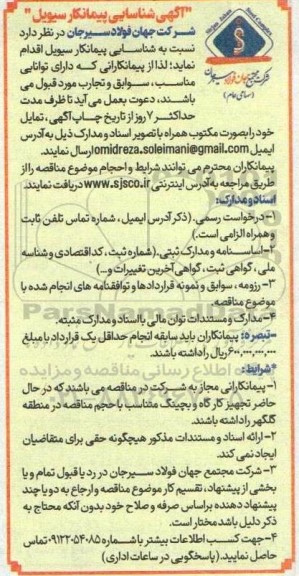 "آگهی شناسایی پیمانکار سیویل"
شرکت جهان فولاد سیرجان در نظر دارد
نسبت به شناسایی پیمانکار سیویل اقدام
نماید؛ لذا از پیمانکارانی که دارای توانایی
مناسب، سوابق و تجارب مورد قبول می
باشند، دعوت بعمل می آید تا ظرف مدت
حداکثر ۷ روز از تاریخ چاپ آگهی، تمایل
خود را بصورت مکتوب همراه با تصویر اسناد و مدارک ذیل به آدرس
ایمیل omidreza.soleimani@gmail.com ارسال نمایند.
پیمانکاران محترم می توانند شرایط و احجام موضوع مناقصه را از
طریق مراجعه به آدرس اینترنتی www.sjsco.ir دریافت نمایند.
اسناد و مدارک:
۱- درخواست رسمی. (ذکر آدرس ایمیل، شماره تماس تلفن ثابت
و همراه الزامی است.)
۲- اساسنامه و مدارک ثبتی. (شماره ثبت، کد اقتصادی و شناسه
ملی، گواهی ثبت، گواهی آخرین تغییرات و...)
۳- رزومه، سوابق و نمونه قراردادها و توافقنامه های انجام شده با
موضوع مناقصه.
۴- مدارک و مستندات توان مالی با اسناد و مدارک مثبته.
-تبصره: پیمانکاران باید سابقه انجام حداقل یک قرارداد با مبلغ
۶۰۰,۰۰۰,۰۰۰,۰۰۰ ریال را داشته باشند.
*شرایط:
۱- پیمانکارانی مجاز به شرکت در مناقصه می باشند که در حال
حاضر تجهیز کارگاه و بچینگ متناسب با حجم مناقصه در منطقه
گلگهر را داشته باشند.
۲- ارائه اسناد و مستندات مذکور هیچگونه حقی برای متقاضیان
ایجاد نمی کند.
۳- شرکت مجتمع جهان فولاد سیرجان در رد یا قبول تمام و یا
بخشی از پیشنهاد، تقسیم کار موضوع مناقصه و ارجاع به دو یا چند
پیشنهاد دهنده براساس صرفه و صلاح خود بدون آنکه محتاج به
ذکر دلیل باشد مختار است.
۴- جهت کسب اطلاعات بیشتر با شماره ۰۹۱۲۲۰۵۴۰۸۵ تماس
حاصل نمایید. (پاسخگویی در ساعات اداری)